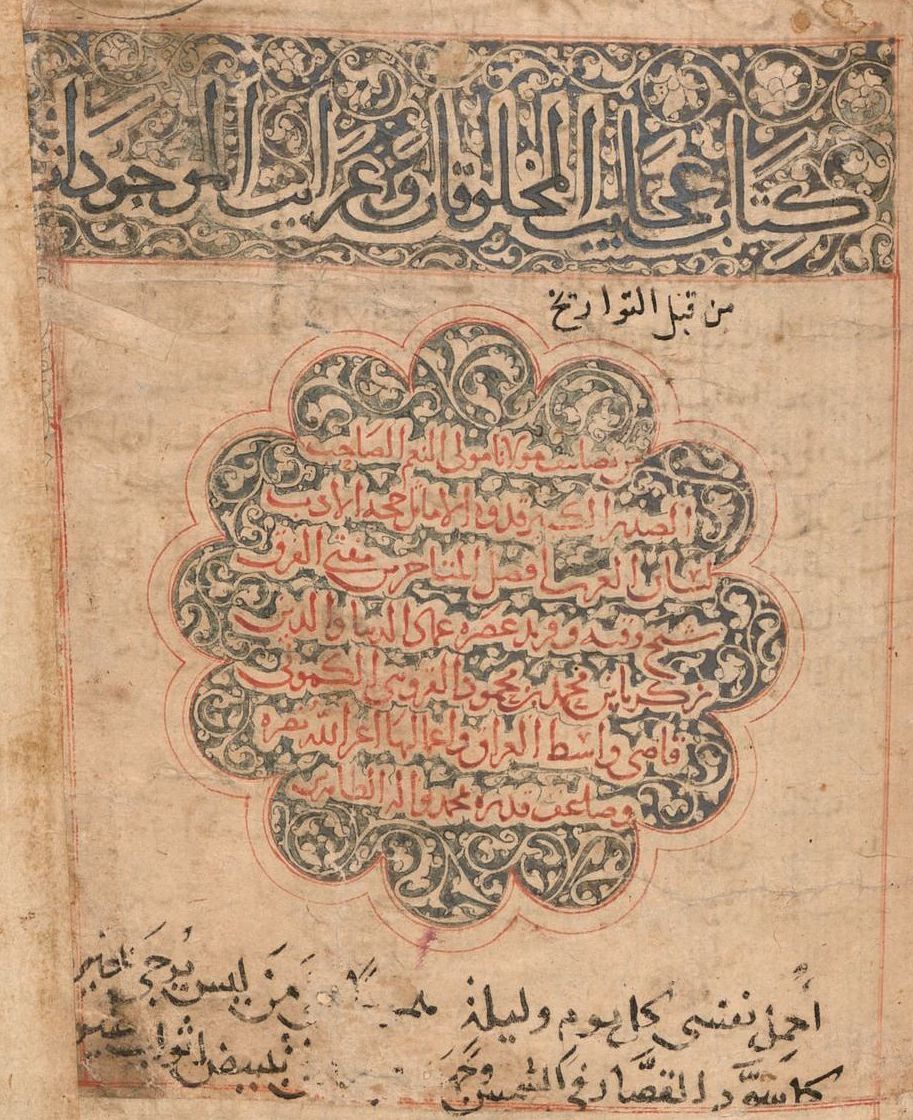 كتاب عجايب المخلوقات وغرايب الموجودات
من قبل التواريخ
من تصانيف مولانا مولى النعم الصاحب
الصدر الكبير قدوة الاماثل حجة الادب
لسان العرب افضل المتاخرين مفتى الفرق
شيخ وقته وفريد عصره عماد الدنيا والدين
زكريا بن محمد بن محمود القزويني الكموني
قاضى واسط العراق واعمالها اعز الله نصره
وضاعف قدره بمحمد واله الطاهرين
أحمل نفسي كل يوم وليلة من ليس يرجى
كما سود القصار في الشمس وجهه تبييض اثواب